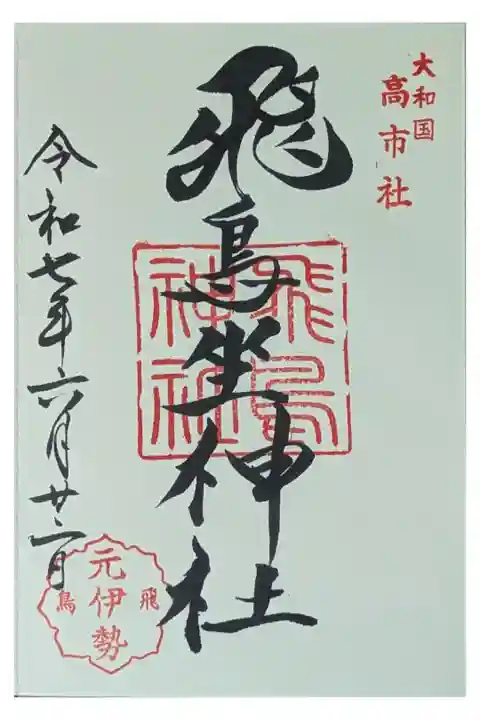 大和国
高市社
飛鳥坐神社
飛鳥
神社
令和七年六月廿二日
元伊勢
飛
鳥